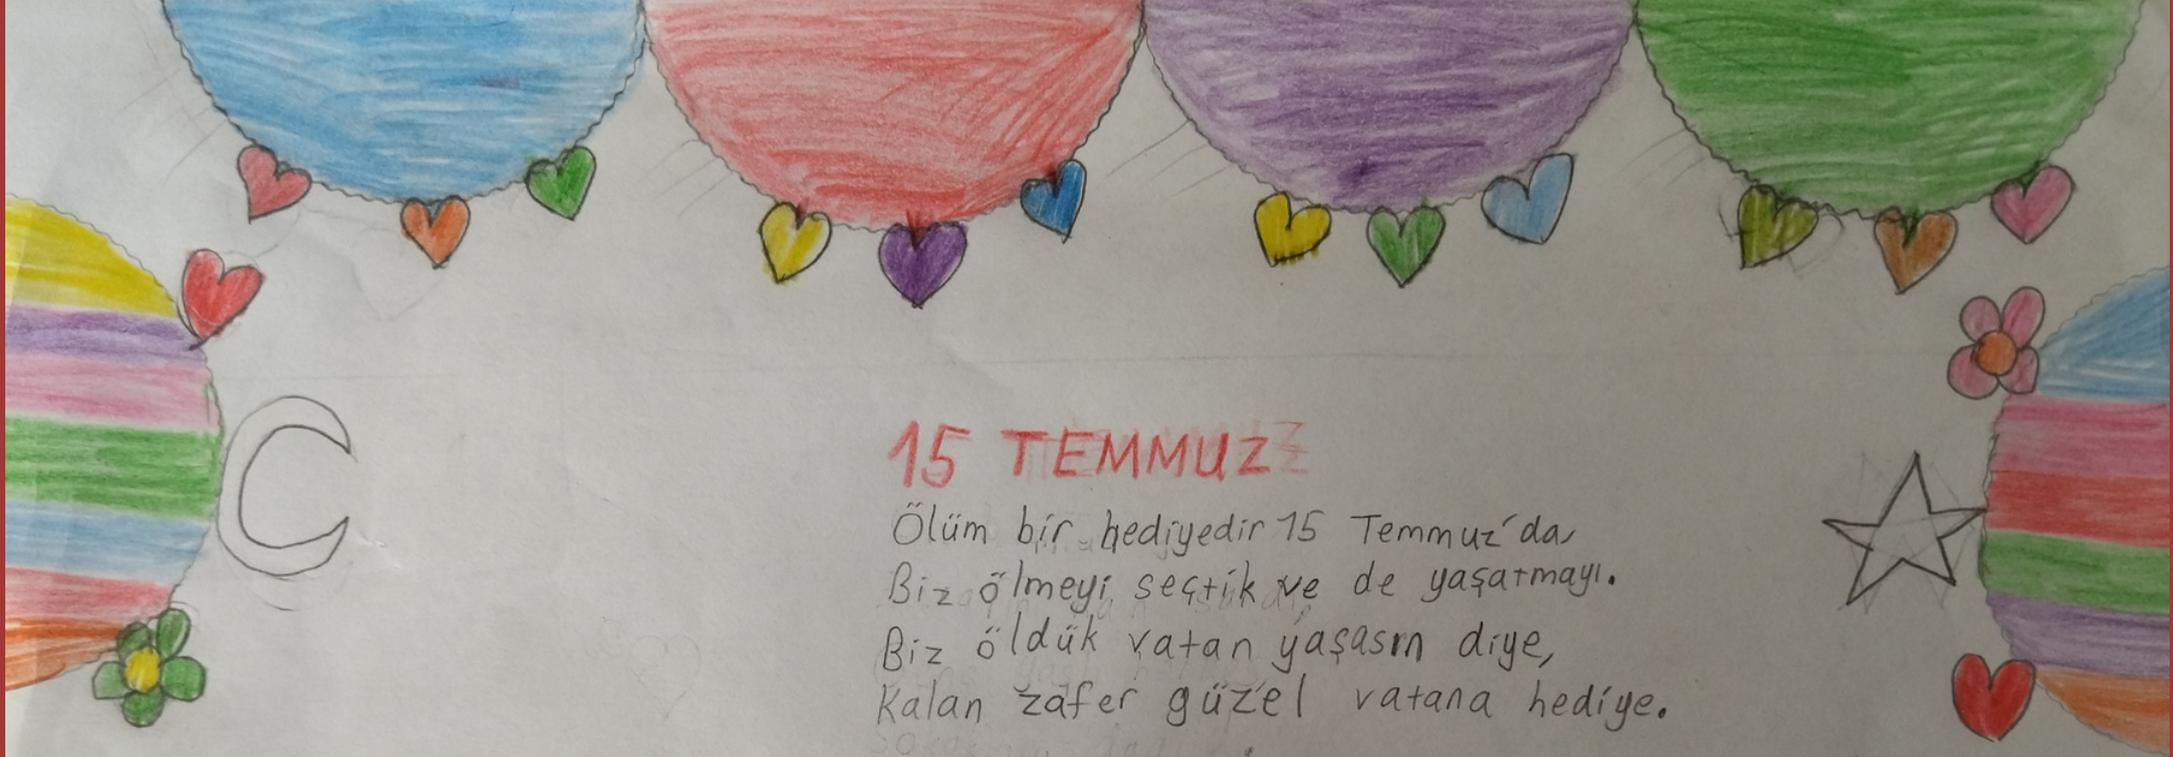 15 TEMMUZ
Ölüm bir hediyedir 15 Temmuz'da,
Biz ölmeyi seçtik ve de yaşatmayı.
Biz öldük vatan yaşasın diye,
Kalan zafer güzel vatana hediye.